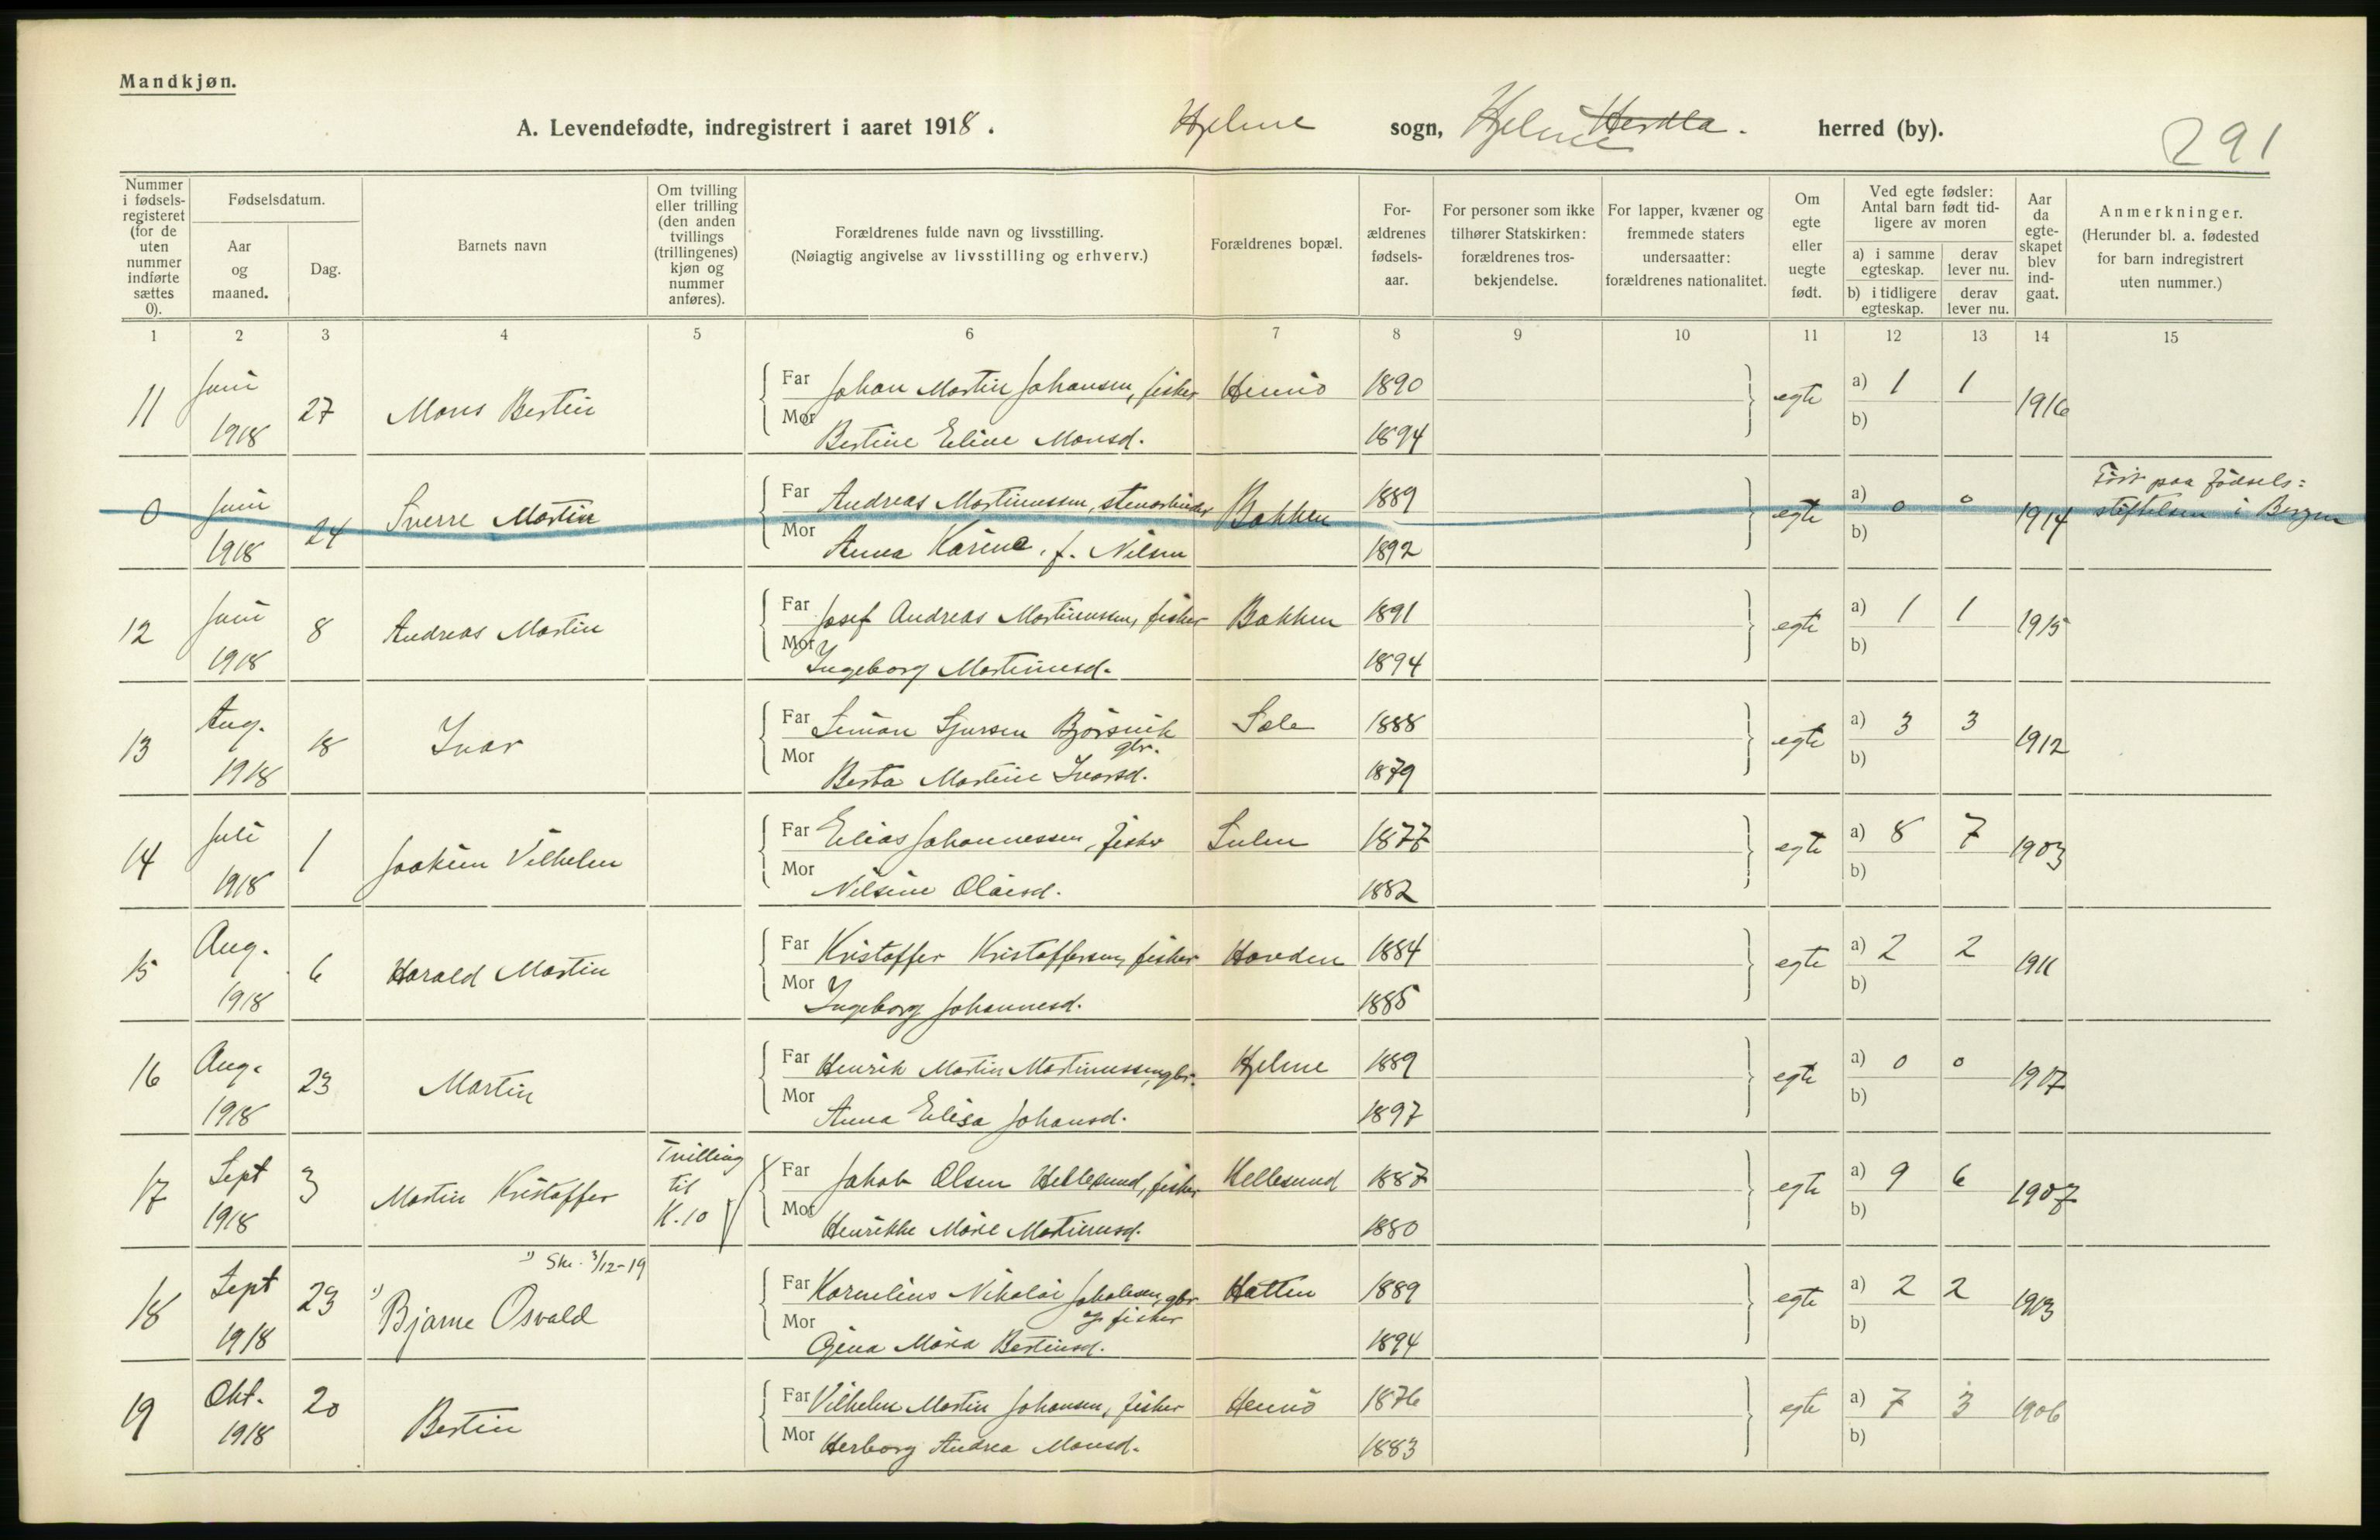 Mandkjøn.
A. Levendefødte, indregistrert i aaret 1918. Hjelme sogn, Hjelme Herdla. herred (by).
291
Nummer i fødsels-registeret (for de uten nummer indførte sættes 0).
Fødselsdatum.
Aar og maaned.
Dag.
Barnets navn
Om tvilling eller trilling (den anden tvillings (trillingenes) kjøn og nummer anføres).
Forældrenes fulde navn og livsstilling.
(Nøiagtig angivelse av livsstilling og erhverv.)
Forældrenes bopæl.
For-ældrenes fødsels-aar.
For personer som ikke tilhører Statskirken: forældrenes tros-bekjendelse.
For lapper, kvæner og fremmede staters undersaatter: forældrenes nationalitet.
Om egte eller uegte født.
Ved egte fødsler: Antal barn født tid-ligere av moren
a) i samme egteskap.
derav lever nu.
b) i tidligere egteskap.
derav lever nu.
Aar da egte-skapet blev ind-gaat.
Anmerkninger.
(Herunder bl. a. fødested for barn indregistrert uten nummer.)
1 2 3 4 5 6 7 8 9 10 11 12 13 14 15
11 Juni 1918 27 Mons Bertin Far Johan Martin Johansen, fisker Hennö 1890 egte a) 1 1 1916
Mor Bertine Eline Monsd. 1894 b)
0 Juni 1918 24 Sverre Martin Far Andreas Martinussen, stenarbeider Bakken 1889 egte a) 0 0 1914 Ført paa fødsels:
stiftelsen i Bergen
Mor Anna Karine, f. Nilsen 1892 b)
12 Juni 1918 8 Andreas Martin Far Josef Andreas Martinussen, fisker Bakken 1891 egte a) 1 1 1915
Mor Ingeborg Martinusd. 1894 b)
13 Aug. 1918 18 Ivar Far Simon Sjursen Bjørsvik gbr. Sæle 1888 egte a) 3 3 1912
Mor Berta Martine Ivarsd. 1879 b)
14 Juli 1918 1 Joakim Vilhelm Far Elias Johannessen, fisker Sulen 1877 egte a) 8 7 1903
Mor Nilsine Olaisd. 1882 b)
15 Aug. 1918 6 Harald Martin Far Kristoffer Kristoffersen, fisker Hovden 1884 egte a) 2 2 1911
Mor Ingeborg Johannesd. 1885 b)
16 Aug. 1918 23 Martin Far Henrik Martin Martinussen, gbr. Hjelme 1889 egte a) 0 0 1917
Mor Anna Elisa Johansd. 1897 b)
17 Sept 1918 3 Martin Kristoffer Tvilling til K. 10 Far Jakob Olsen Hellesund, fisker Hellesund 1887 egte a) 9 6 1907
Mor Henrikke Marie Martinusd. 1880 b)
1) Skr. 3/12-19
18 Sept 1918 23 1) Bjarne Osvald Far Kornelius Nikolai Jakobsen, gbr og fisker Hatten 1889 egte a) 2 2 1913
Mor Gjina Maria Bertinsd. 1894 b)
19 Okt. 1918 20 Bertin Far Vilhelm Martin Johansen, fisker Hennö 1876 egte a) 7 3 1906
Mor Herborg Andrea Monsd. 1883 b)